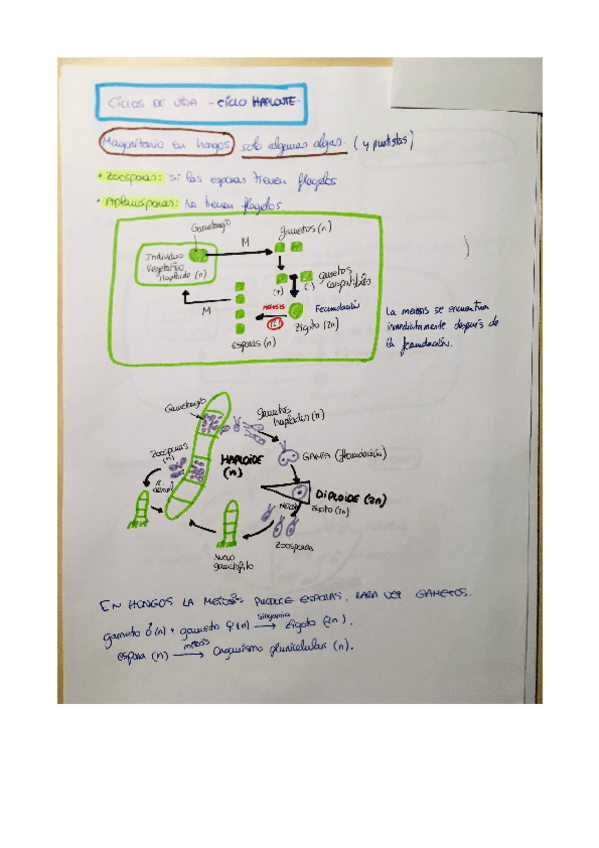 CICLOS DE VIDA - CICLO HAPLONTE-
Mayoritario en hongos, solo algunas algas. (y protistas)
• Zoosporas: si las esporas tienen flagelos
• Aplanosporas: No tienen flagelos
Gametangio
gametos (n)
M
Individuo
Vegetativo
Haploide (n)
gametos
compatibles
(+)
(-)
M
MEIOSIS
Fecundación
esporas (n)
Zigoto (2n)
La meiosis se encuentra
inmediatamente después de
la fecundación.
Gametangio
gametos
haploides (n)
Zoosporas
(n)
HAPLOIDE
(n)
GAMIA (fecundación)
DIPLOIDE (2n)
Zigoto (2n)
Zoosporas
Nuevo
gametófito
EN HONGOS LA MEIOSIS PRODUCE ESPORAS, RARA VEZ GAMETOS.
gameto ♂(n) + gameto ♀(n) singamia → zigoto (2n).
espora (n) mitosis → Organismo pluricelular (n).